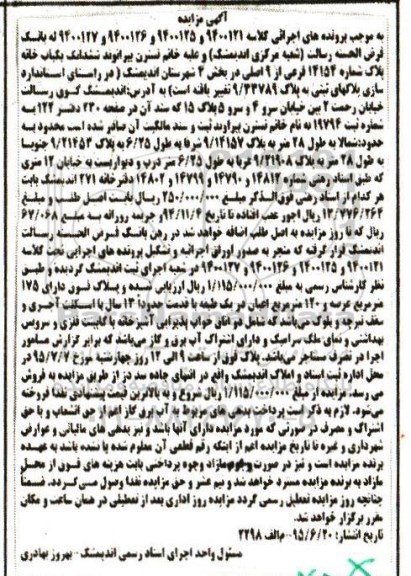 آگهی مزایده
به موجب پرونده های اجرائی کلاسه ۹۴۰۰۱۲۱ و ۹۴۰۰۱۲۵ و ۹۴۰۰۱۲۶ و ۹۴۰۰۱۲۷ له بانک
قرض الحسنه رسالت (شعبه مرکزی اندیمشک) و علیه خانم نسترن بیرانوند ششدانگ یکباب خانه
پلاک شماره ۱۴۱۵۴ فرعی از ۹ اصلی در بخش ۴ شهرستان اندیمشک ( در راستای استاندارد
سازی پلاکهای ثبتی به پلاک ۹/۳۳۷۸۹ تغییر یافته است) به آدرس:اندیمشک کوی رسالت
خیابان رحمت ۲ بین خیابان سرو ۴ و سرو ۵ پلاک ۱۵ که سند آن در صفحه ۲۳۰ دفتر ۱۲۴ به
شماره ثبت ۱۹۷۹۴ به نام خانم نسترن بیراوند ثبت و سند مالکیت آن صادر شده است محدود به
حدود:شمالا به طول ۲۸ متر به پلاک ۹/۱۴۱۵۷ شرقا به طول ۶/۲۵ به پلاک ۹/۲۱۴۵۳ جنوبا
به طول ۲۸ متر به پلاک ۹/۳۱۹۰۸ غربا به طول ۶/۲۵ متر درب و دیواریست به خیابان ۱۲ متری
که طبق اسناد رهنی شماره ۱۴۸۱۲ و ۱۴۷۹۰ و ۱۴۷۹۱ و ۱۴۸۰۲ دفترخانه ۲۷۱ اندیمشک بابت
هر کدام از اسناد رهنی فوق الذکر مبلغ ۲۵۰/۰۰۰/۰۰۰ ریال بابت اصل طلب و مبلغ
۱۳/۷۷۶/۲۶۴ ریال اجور عقب افتاده تا تاریخ ۹۴/۱۱/۴ و جریمه روزانه به مبلغ ۶۷/۰۶۸
ریال که تا روز مزایده به اصل طلب اضافه خواهد شد در رهن بانک قرض الحسنه رسالت
اندیمشک قرار گرفته که منجر به صدور اوراق اجرائیه و تشکیل پرونده های اجرایی تحت کلاسه
۹۴۰۰۱۲۱ و ۹۴۰۰۱۲۵ و ۹۴۰۰۱۲۶ و ۹۴۰۰۱۲۷ در شعبه اجرای ثبت اندیمشک گردیده و طبق
نظر کارشناس رسمی به مبلغ ۱/۱۱۵/۰۰۰/۰۰۰ ریال ارزیابی شده و پلاک فوق دارای ۱۷۵
مترمربع عرصه و ۱۲۰ مترمربع اعیان یک طبقه با قدمت حدودا ۱۳ سال با اسکلت آجری و
سقف تیرچه و بلوک می‌باشد که شامل دو اتاق خواب پذیرایی آشپزخانه با کابینت فلزی و سرویس
بهداشتی و نمای ملک سرامیک و دارای اشتراک آب برق و گاز می‌باشد که برابر گزارش مامور
اجرا در تصرف مستاجر می‌باشد. پلاک فوق از ساعت ۹ الی ۱۲ روز چهارشنبه مورخ ۹۵/۷/۷ در
محل اداره ثبت اسناد و املاک اندیمشک واقع در انتهای جاده سد دز از طریق مزایده به فروش
می رسد. مزایده از مبلغ ۱/۱۱۵/۰۰۰/۰۰۰ ریال شروع و به بالاترین قیمت پیشنهادی نقدا فروخته
می‌شود. لازم به ذکر است پرداخت بدهی های مربوط به آب برق گاز اعم از حق انشعاب و یا حق
اشتراک و مصرف در صورتی که مورد مزایده دارای آنها باشد و نیز بدهی های مالیاتی و عوارض
شهرداری و غیره تا تاریخ مزایده اعم از اینکه رقم قطعی آن معلوم شده یا نشده باشد به عهده
برنده مزایده است و نیز در صورت وجود مازاد وجوه پرداختی بابت هزینه های فوق از محل
مازاد به برنده مزایده مسترد خواهد شد و نیم عشر و حق مزایده نقدا وصول می گردد. ضمنا
چنانچه روز مزایده تعطیل رسمی گردد مزایده روز اداری بعد از تعطیلی در همان ساعت و مکان
مقرر برگزار خواهد شد.
تاریخ انتشار: ۹۵/۶/۲۰- م‌الف ۲۲۹۸
مسئول واحد اجرای اسناد رسمی اندیمشک - بهروز بهادری